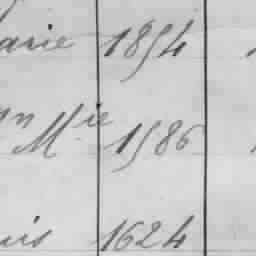 arie 1854
M^ie 1586
uis 1624